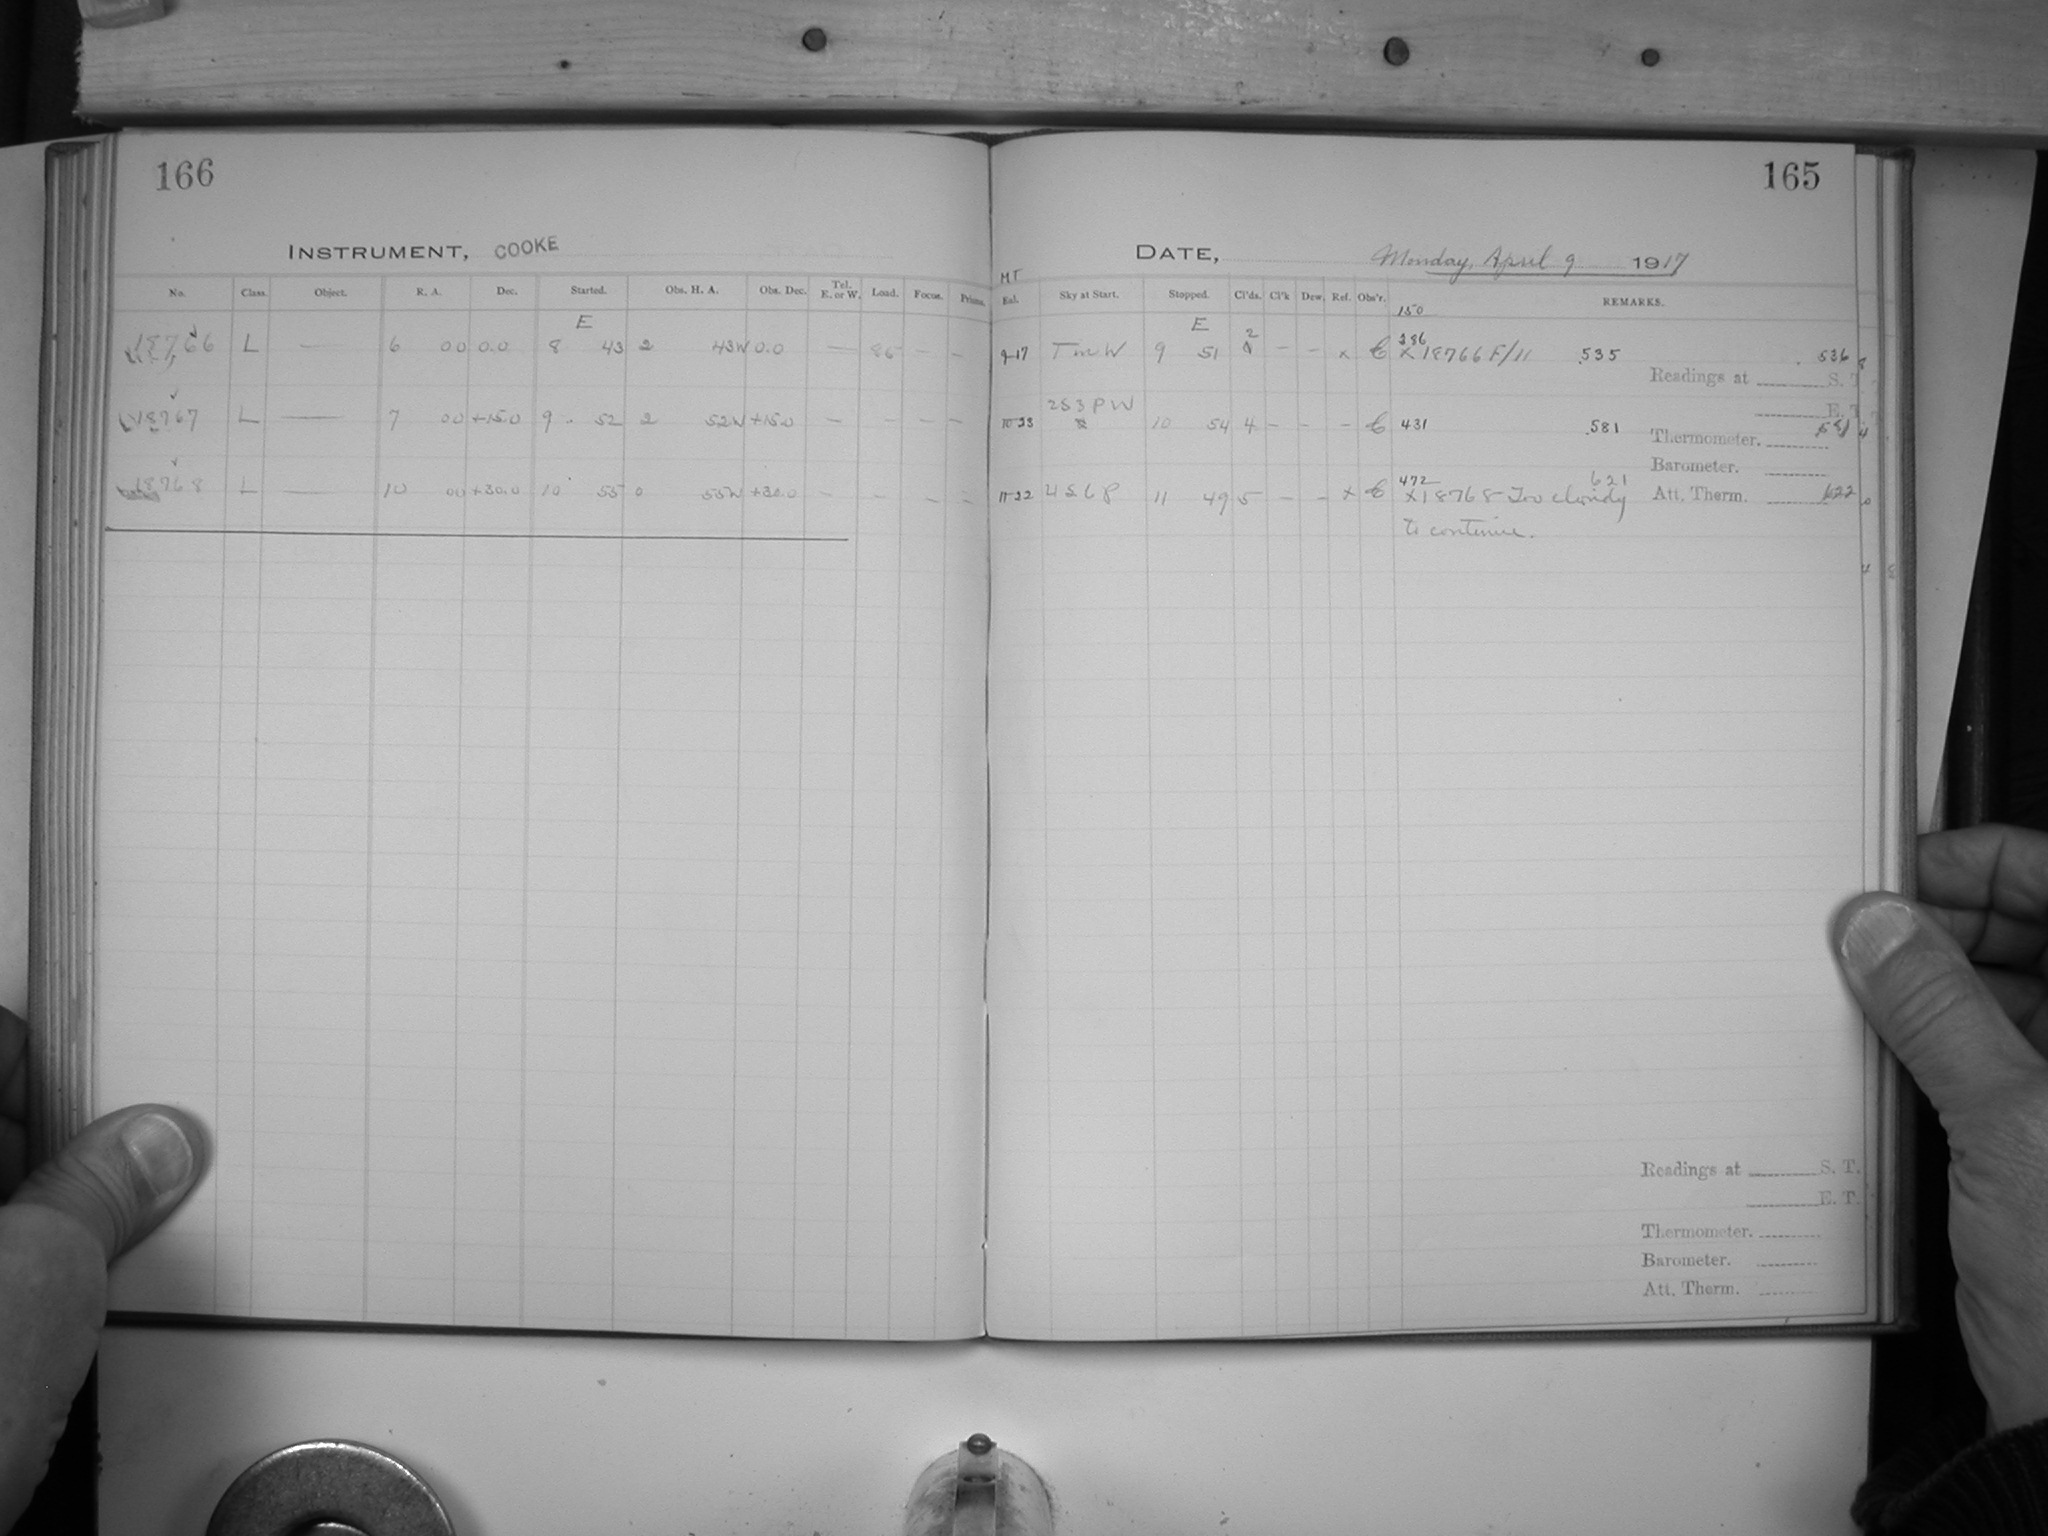 166
INSTRUMENT, COOKE
No. Class. Object. R. A. Dec. Started. Obs. H. A. Obs. Dec. Tel. E. or W. Load. Focus. Prisms.
E
18766 L — 6 00 0.0 8 43 2 43W 0.0 — 85 – –
18767 L — 7 00 +15.0 9 52 2 52W +15.0 – – – –
18768 L — 10 00 +30.0 10 55 0 55W +30.0 – – – –
165
DATE, Monday, April 9 1917
MT
Eal. Sky at Start. Stopped. Cl'ds. Cl'k Dew. Ref. Obs'r. REMARKS.
150
E
9 17 TmW 9 51 2 – – x C 386 x 18766 F/11 .535 .536
Readings at S. T.
2S3PW
E. T.
10 23 10 54 4 – – – C 431 .581
Thermometer.
Barometer.
11 22 4S6P 11 49 5 – – x C 472 x 18768 Too cloudy 621 Att. Therm. 622
to continue.
Readings at S. T.
E. T.
Thermometer.
Barometer.
Att. Therm.